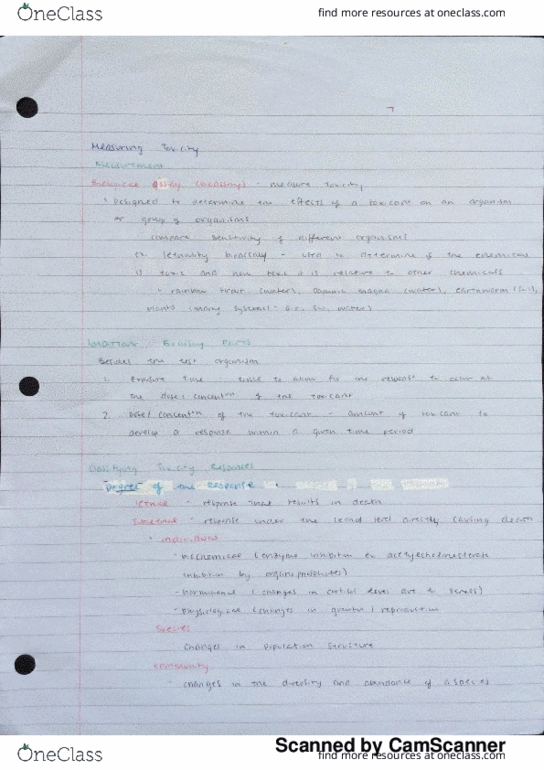 OneClass
find more resources at oneclass.com
7
Measuring Toxicity
Measurement
Biological assay (bioassay) - measure toxicity
• Designed to determine the effects of a toxicant on an organism
or group of organisms
compare sensitivity of different organisms
ex. lethality bioassay - used to determine if the chemical
is toxic and how toxic it is relative to other chemicals
rainbow trout (water), Daphnia magna (water), earthworm (soil),
plants (many systems - air, soil, water)
Important Bioassay Parts
Besides the test organism
1. Exposure Time - time to allow for the response to occur at
the dose/concent'n of the toxicant
2. Dose/concent'n of the toxicant - amount of toxicant to
develop a response within a given time period
Toxicity Responses
Degree of the Response
lethal - response that results in death
Sublethal - response under the level directly causing death
• individual
- biochemical (enzyme inhibition ex acetylcholinesterase
inhibition by organophosphates)
- hormonal (changes in cortisol level due to stress)
- physiological (changes in growth / reproduction
Species
changes in population structure
community
- changes in the diversity and abundance of a species
Scanned by CamScanner
OneClass
find more resources at oneclass.com